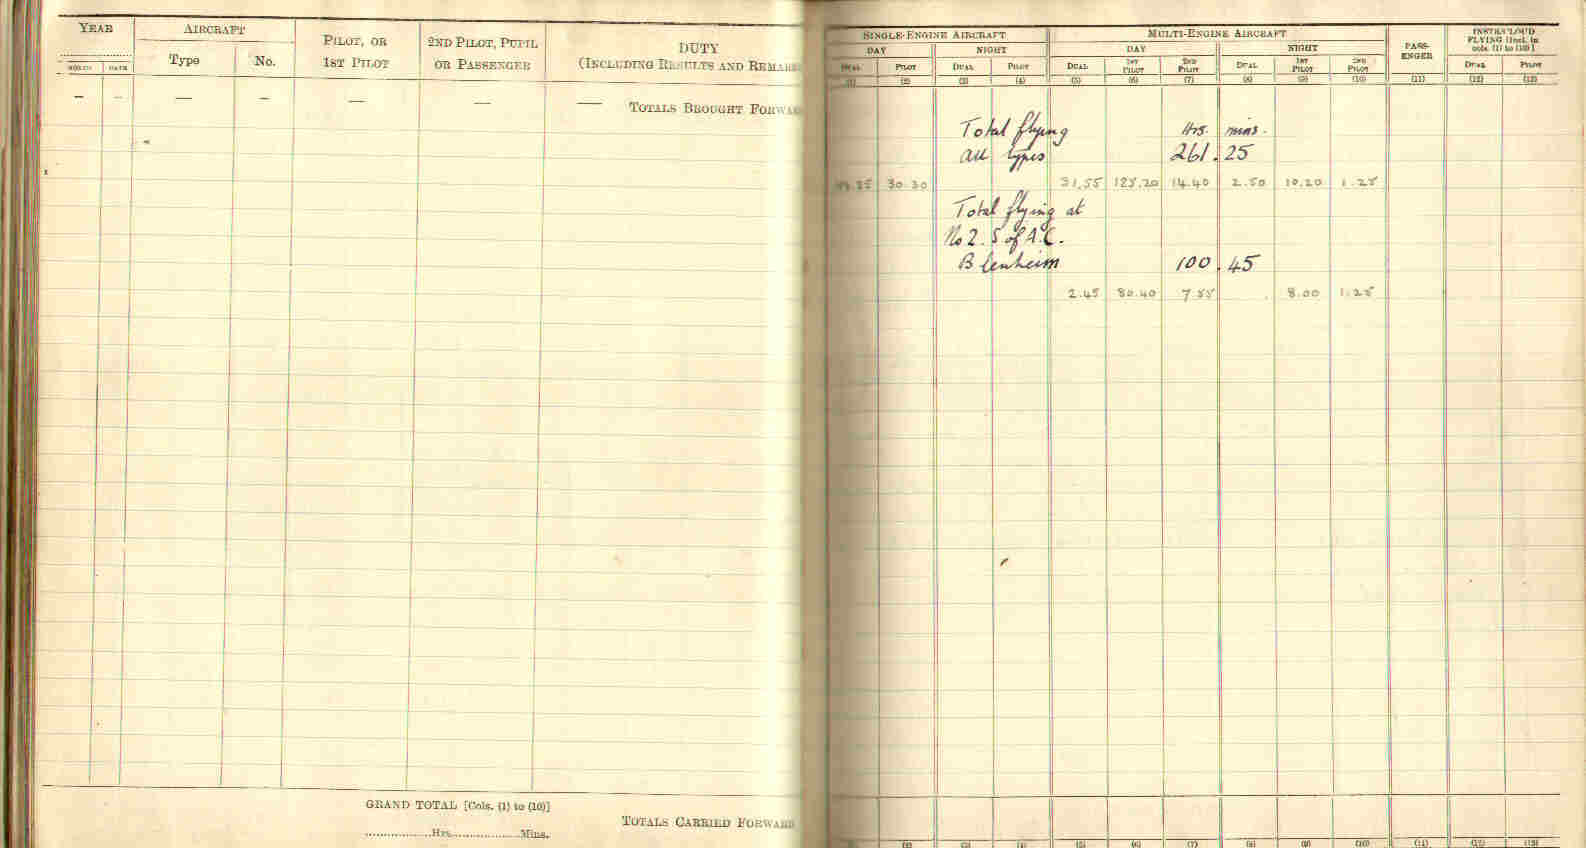 YEAR AIRCRAFT PILOT, OR 2ND PILOT, PUPIL DUTY
MONTH DATE Type No. 1ST PILOT OR PASSENGER (INCLUDING RESULTS AND REMARKS
— — — — — — — TOTALS BROUGHT FORWARD
GRAND TOTAL [Cols. (1) to (10)]
Hrs. Mins.
TOTALS CARRIED FORWARD
SINGLE-ENGINE AIRCRAFT MULTI-ENGINE AIRCRAFT PASS- ENGER FLYING [Incl. in cols. (1) to (10)]
DAY NIGHT DAY NIGHT
DUAL PILOT DUAL PILOT DUAL 1ST PILOT 2ND PILOT DUAL 1ST PILOT 2ND PILOT DUAL PILOT
(1) (2) (3) (4) (5) (6) (7) (8) (9) (10) (11) (12) (13)
Total flying Hrs. mins.
all types 261.25
30.30 31.55 125.20 14.40 2.50 10.20 1.25
Total flying at
No 2. S of A.C.
Blenheim 100.45
2.45 80.40 7.55 8.00 1.25
(2) (3) (4) (5) (6) (7) (8) (9) (10) (11) (12) (13)